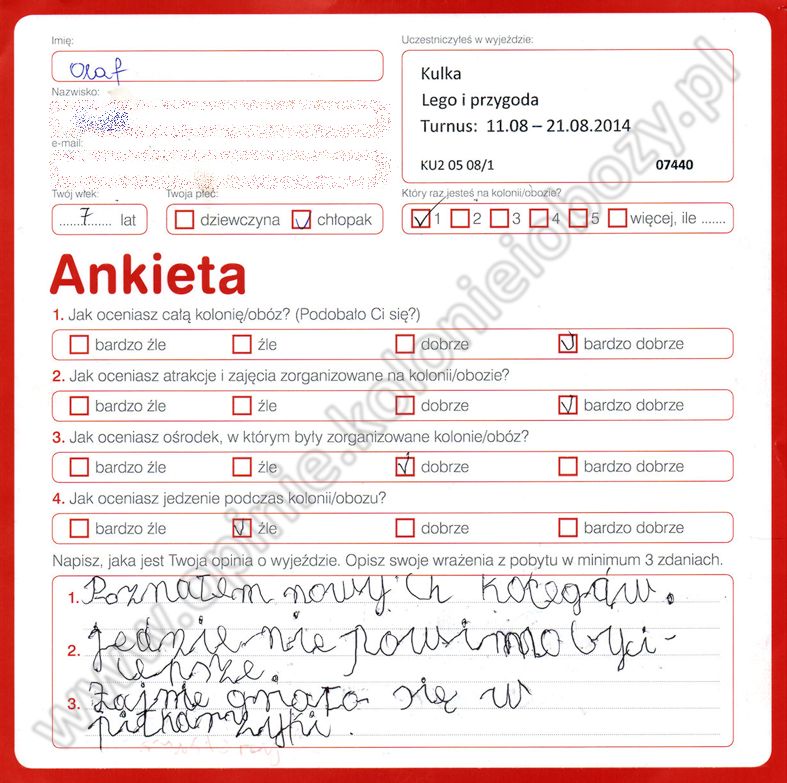 Imię:
Olaf
Nazwisko:
e-mail:
Twój wiek:
7 lat
Twoja płeć:
dziewczyna chłopak
Uczestniczyłeś w wyjeździe:
Kulka
Lego i przygoda
Turnus: 11.08 – 21.08.2014
KU2 05 08/1 07440
Który raz jesteś na kolonii/obozie?
1 2 3 4 5 więcej, ile .......
Ankieta
1. Jak oceniasz całą kolonię/obóz? (Podobało Ci się?)
bardzo źle źle dobrze bardzo dobrze
2. Jak oceniasz atrakcje i zajęcia zorganizowane na kolonii/obozie?
bardzo źle źle dobrze bardzo dobrze
3. Jak oceniasz ośrodek, w którym były zorganizowane kolonie/obóz?
bardzo źle źle dobrze bardzo dobrze
4. Jak oceniasz jedzenie podczas kolonii/obozu?
bardzo źle źle dobrze bardzo dobrze
Napisz, jaka jest Twoja opinia o wyjeździe. Opisz swoje wrażenia z pobytu w minimum 3 zdaniach.
1. Poznałem nowych kolegów.
2. jedzienie powinno być
lepsze.
3. Fajnie grało się w
piłkarzyki.
www.opinie.kolonieiobozy.pl